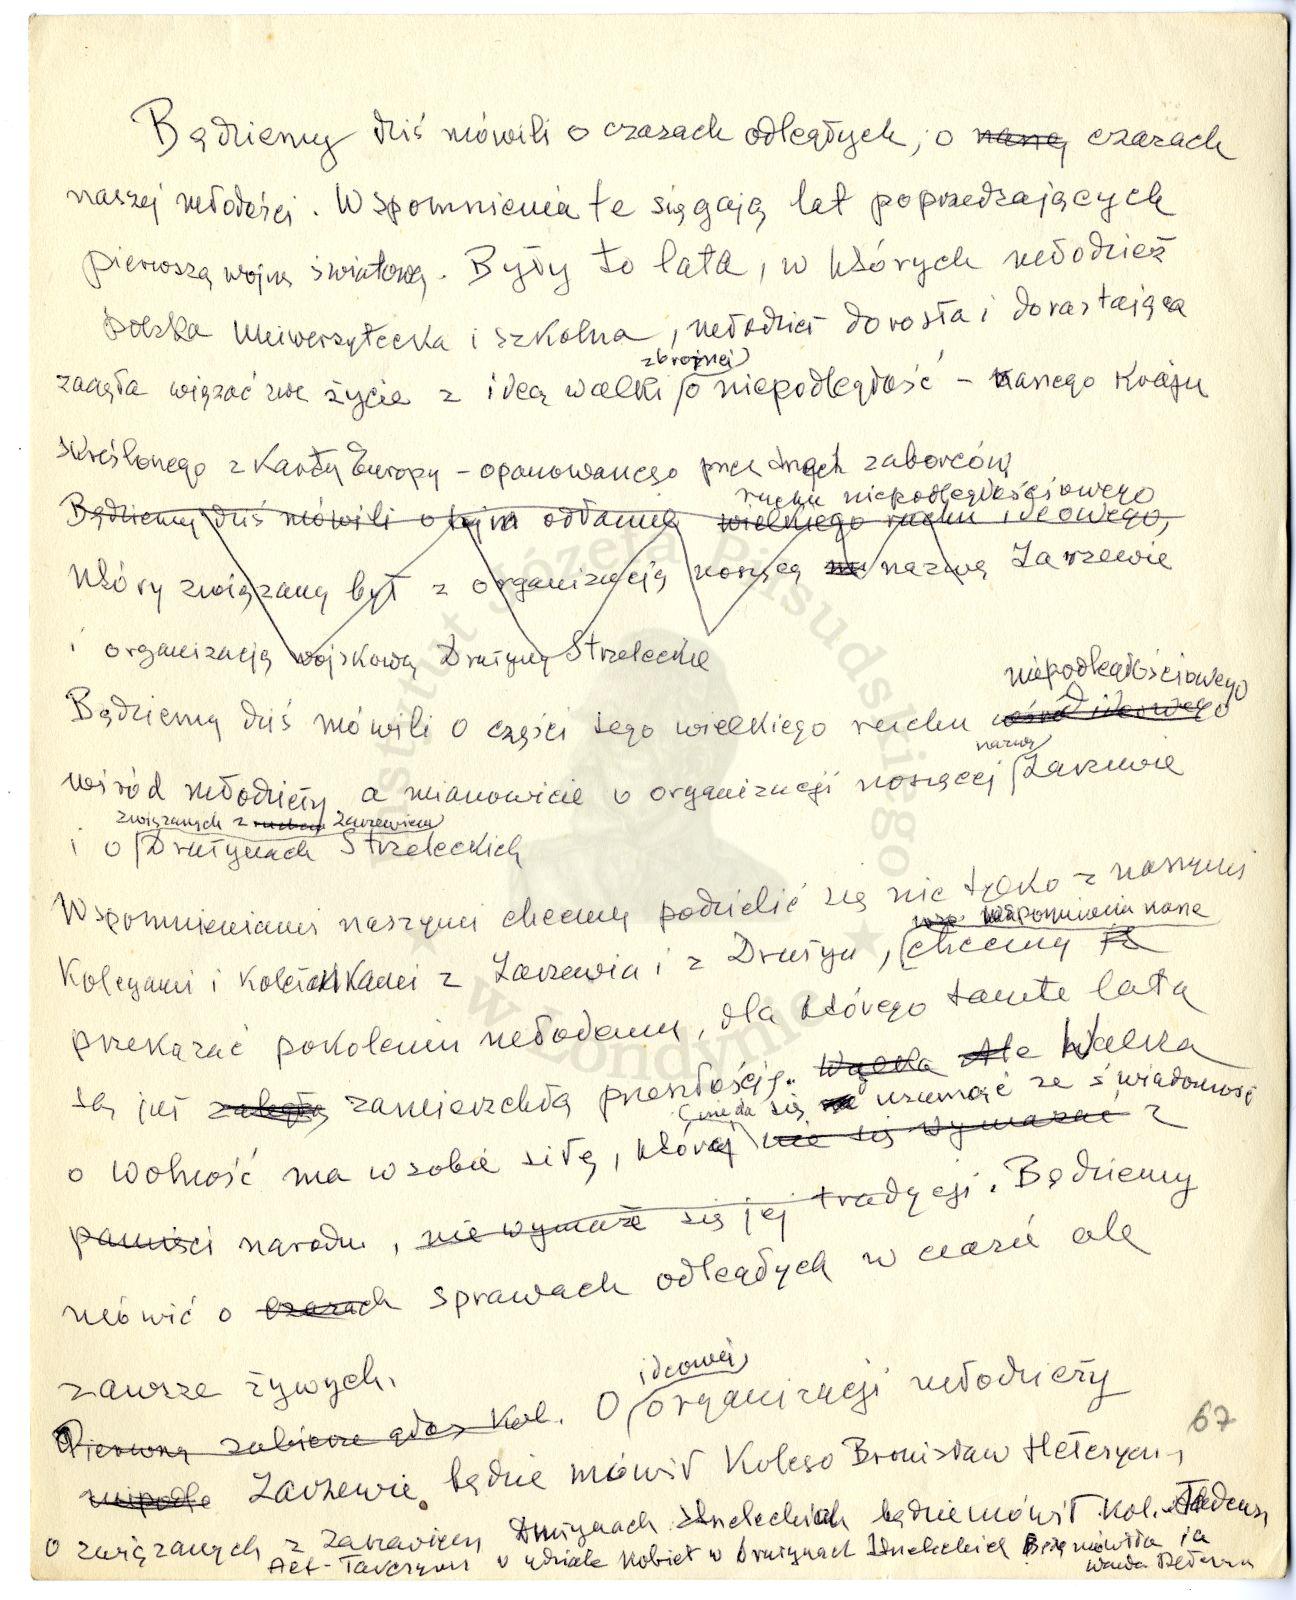 Będziemy dziś mówili o czasach odległych, o naszej czasach
naszej młodości. Wspomnienia te sięgają lat poprzedzających
pierwszą wojnę światową. Były to lata, w których młodzież
polska uniwersytecka i szkolna, młodzież dorosła i dorastająca
zbrojnej
zaczęła wiązać swe życie z ideą walki o niepodległość – naszego kraju
skreślonego z karty Europy – opanowanego przez trzech zaborców
ruchu niepodległościowego
Będziemy dziś mówili o tym odłamie wielkiego ruchu ideowego,
który związany był z organizacją noszącą nazwę Zarzewie
i organizacją wojskową Drużyny Strzeleckie
niepodległościowego
Będziemy dziś mówili o części tego wielkiego ruchu ideowego
nazwę
wśród młodzieży a mianowicie o organizacji noszącej Zarzewie
związanych z ruchem Zarzewiem
i o Drużynach Strzeleckich
Wspomnieniami naszymi chcemy podzielić się nie tylko z naszymi
wspomnienia nasze
Kolegami i Koleżankami z Zarzewia i z Drużyn, chcemy
przekazać pokoleniu młodemu, dla którego tamte lata
są już zamierzchłą przeszłością. Walka Ale Walka
nie da się usunąć ze świadomości
o wolność ma w sobie siłę, której nie się wymazać z
pamięci narodu, nie wymaże się jej tradycji. Będziemy
mówić o czasach sprawach odległych w czasie ale
zawsze żywych.
ideowej
Pierwszy zabierze głos Kol. O organizacji młodzieży
67
niepodle Zarzewie będzie mówił Kolega Bronisław Hełczyn
o związanych z Zarzewiem Drużynach Strzeleckich będzie mówił Kol. Tadeusz
Alf-Tarczyński o udziale kobiet w Drużynach Strzeleckich Będę mówiła ja
Wanda
Instytut Józefa Piłsudskiego
w Londynie